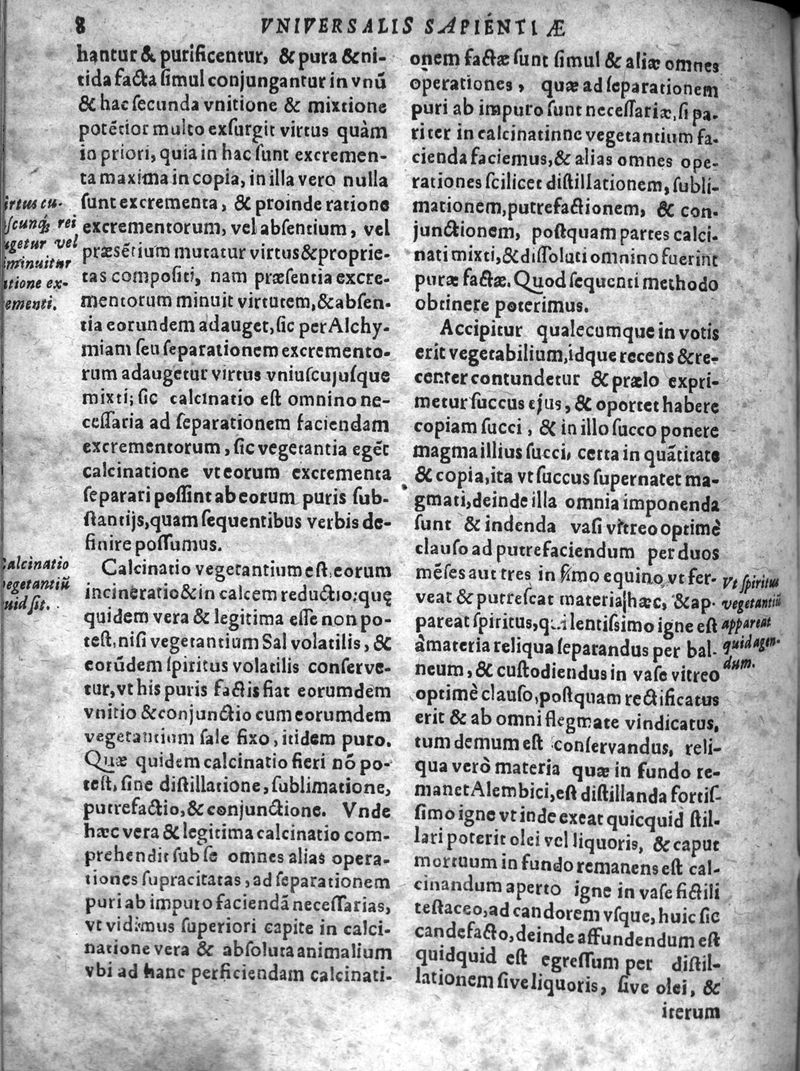 8 VNIVERSALIS SAPIENTIÆ
hantur & purificentur, & pura & ni-
tida facta simul conjungantur in vnū
& hac secunda vnitione & mixtione
potētior multo exsurgit virtus quàm
in priori, quia in hac sunt excremen-
ta maxima in copia, in illa vero nulla
sunt excrementa, & proinde ratione
excrementorum, vel absentium, vel
præsētium mutatur virtus & proprie-
tas compositi, nam præsentia excre-
mentorum minuit virtutem, & absen-
tia eorundem adauget, sic per Alchy-
miam seu separationem excremento-
rum adaugetur virtus vniuscujusque
mixti; sic calcinatio est omnino ne-
cessaria ad separationem faciendam
excrementorum, sic vegetantia egēt
calcinatione vt eorum excrementa
separari possint ab eorum puris sub-
stantijs, quam sequentibus verbis de-
finire possumus.
Calcinatio vegetantium est, eorum
incineratio & in calcem reductio; quę
quidem vera & legitima esse non po-
test, nisi vegetantium Sal volatilis, &
eorūdem spiritus volatilis conserve-
tur, vt his puris factis fiat eorumdem
vnitio & conjunctio cum eorumdem
vegetantium sale fixo, itidem puro.
Quæ quidem calcinatio fieri nō po-
test, sine distillatione, sublimatione,
putrefactio, & conjunctione. Vnde
hæc vera & legitima calcinatio com-
prehendit sub se omnes alias opera-
tiones supracitatas, ad separationem
puri ab imputo faciendā necessarias,
vt vidimus superiori capite in calci-
natione vera & absoluta animalium
vbi ad hanc perficiendam calcinati-
irtus cu-
iscunq; rei
ugetur vel
iminuitur
atione ex-
ementi.
Calcinatio
egetantiū
uid sit.
onem factæ sunt simul & aliæ omnes
operationes, quæ ad separationem
puri ab impuro sunt necessariæ, si pa-
riter in calcinatinne vegetantium fa-
cienda faciemus, & alias omnes ope-
rationes scilicet distillationem, subli-
mationem, putrefactionem, & con-
junctionem, postquam partes calci-
nati mixti, & dissoluti omnino fuerint
puræ factæ. Quod sequenti methodo
obtinere poterimus.
Accipitur qualecumque in votis
erit vegetabilium, idque recens & re-
center contundetur & prælo expri-
metur succus ejus, & oportet habere
copiam succi, & in illo succo ponere
magma illius succi, certa in quātitate
& copia, ita vt succus supernatet ma-
gmati, deinde illa omnia imponenda
sunt & indenda vasi vitreo optimè
clauso ad putrefaciendum per duos
mēses aut tres in fimo equino vt fer-
veat & putrescat materia hæc, & ap-
pareat spiritus, qui lentissimo igne est
àmateria reliqua separandus per bal-
neum, & custodiendus in vase vitreo
optimè clauso, postquam rectificatus
erit & ab omni flegmate vindicatus,
tum demum est conservandus, reli-
qua verò materia quæ in fundo re-
manet Alembici, est distillanda fortis-
simo igne vt inde exeat quicquid stil-
lari poterit olei vel liquoris, & caput
mortuum in fundo remanens est cal-
cinandum aperto igne in vase fictili
testaceo, ad candorem vsque, huic sic
candefacto, deinde affundendum est
quidquid est egressum per distil-
lationem sive liquoris, sive olei, &
iterum
Vt spiritus
vegetantiū
appareat
quid agen-
dum.